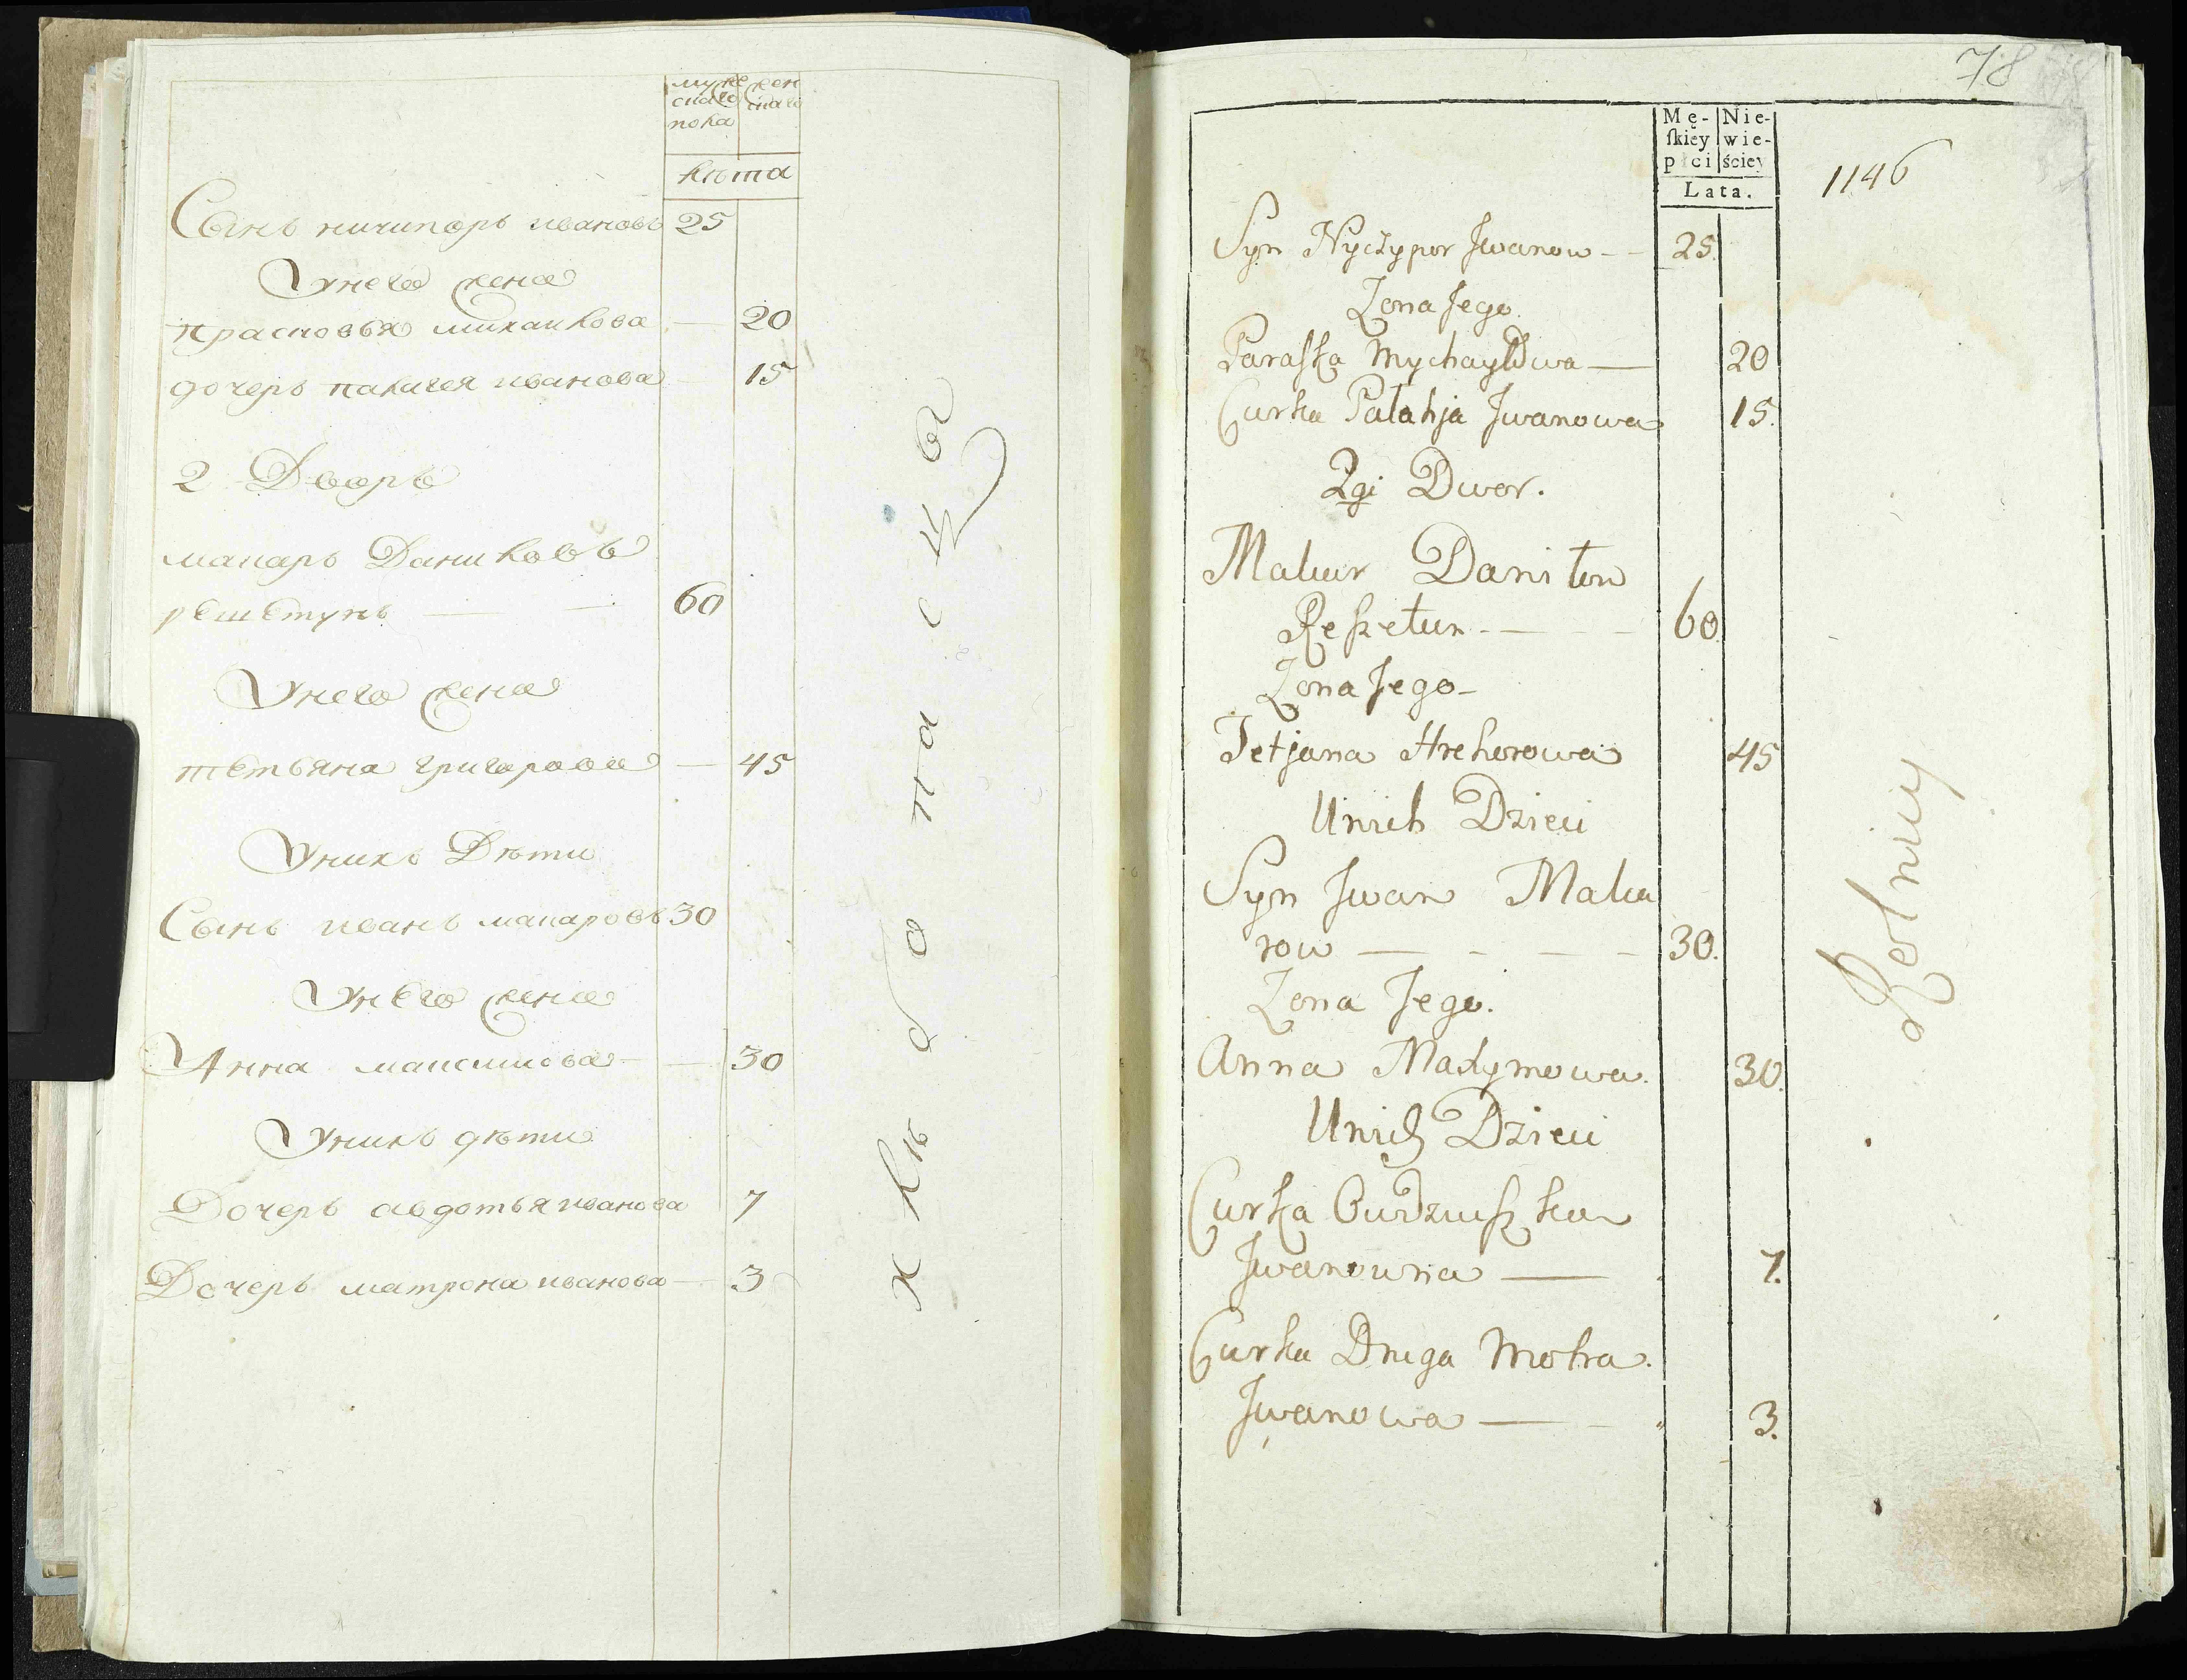 мужескаго пола
женскаго
лѣта
Сынъ ничипоръ ивановъ 25
Унего жена
прасковья михаилова — 20
дочерь палагея иванова 15
2 Дворъ
макаръ Даниловъ
решетунъ — — 60
Унего жена
тетьяна григорова — 45
Унихъ Дѣти
Сынъ иванъ макаровъ 30
Унего жена
Анна максимова — 30
Унихъ дѣти
Дочерь авдотья иванова 7
Дочерь матрона иванова — 3
хлѣбопашцы
78
Mę-
ſkiey
płci
Nie-
wie-
ściey
Lata.
1146
Syn Nyczypor Jwanow - - 25.
Zona Jego.
Paraſka Mychayłowa — 20
Curka Palahja Jwanowa 15.
2gi Dwor.
Makar Daniłow
Reſzetun - — - - 60.
Zona Jego -
Tetjana Hrehorowa 45
Unich Dzieci
Syn Jwan Maka
row — - — - 30.
Zona Jego.
Anna Maxymowa. 30.
Unich Dzieci
Curka Oudziuſzka
Jwanowna — 7.
Curka Druga Motra.
Jwanowa — - 3.
Rolnicy